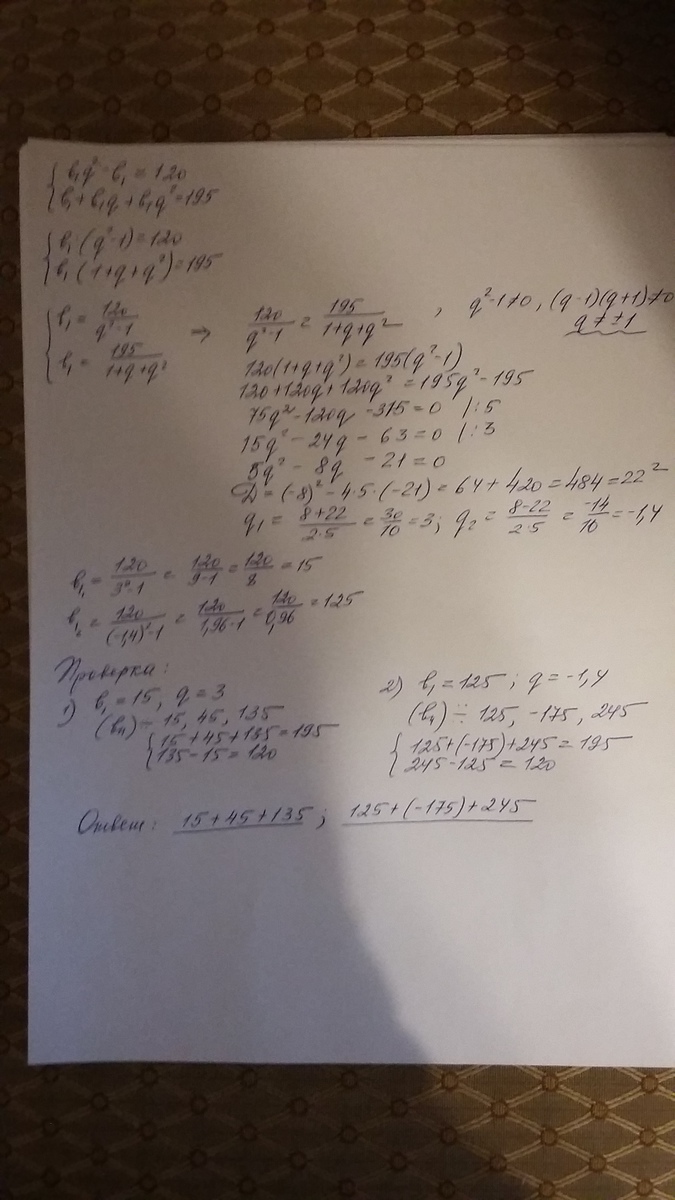 { b₁q² - b₁ = 120
{ b₁ + b₁q + b₁q² = 195
{ b₁(q² - 1) = 120
{ b₁(1 + q + q²) = 195
{ b₁ = 120/(q² - 1)
{ b₁ = 195/(1 + q + q²)
⇒ 120/(q² - 1) = 195/(1 + q + q²) , q² - 1 ≠ 0, (q - 1)(q + 1) ≠ 0
q ≠ ±1
120(1 + q + q²) = 195(q² - 1)
120 + 120q + 120q² = 195q² - 195
75q² - 120q - 315 = 0 | : 5
15q² - 24q - 63 = 0 | : 3
5q² - 8q - 21 = 0
D = (-8)² - 4·5·(-21) = 64 + 420 = 484 = 22²
q₁ = (8+22)/(2·5) = 30/10 = 3; q₂ = (8-22)/(2·5) = -14/10 = -1,4
b₁ = 120/(3² - 1) = 120/(9 - 1) = 120/8 = 15
b₁ = 120/((-1,4)² - 1) = 120/(1,96 - 1) = 120/0,96 = 125
Проверка:
1) b₁ = 15, q = 3
(bₙ) ÷ 15, 45, 135
{ 15 + 45 + 135 = 195
{ 135 - 15 = 120
2) b₁ = 125 ; q = -1,4
(bₙ) ÷ 125, -175, 245
{ 125 + (-175) + 245 = 195
{ 245 - 125 = 120
Ответ: 15 + 45 + 135 ; 125 + (-175) + 245